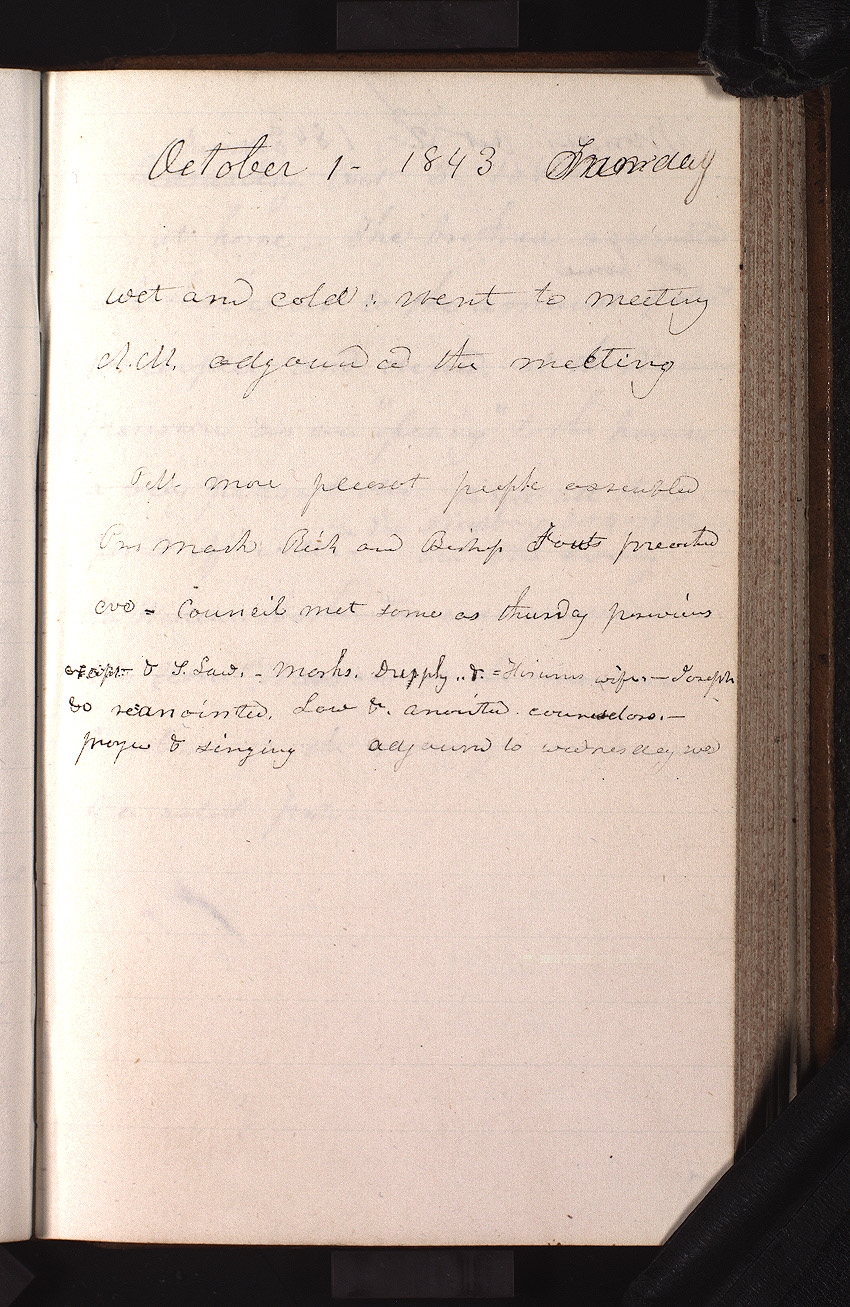 October 1- 1843 Sunday
wet and cold: went to meeting
A.M. adjournd the meeting
P.M. more pleasant people assembled
Pres Marks Rich and Bishop Fouts preached
eve = Council met same as thursday previous
except & Law. - Marks. Durphy. & = Hirums wife. - Joseph
reanointed. Law &. anointed counselors. -
prayer & singing adjournd to wednesday